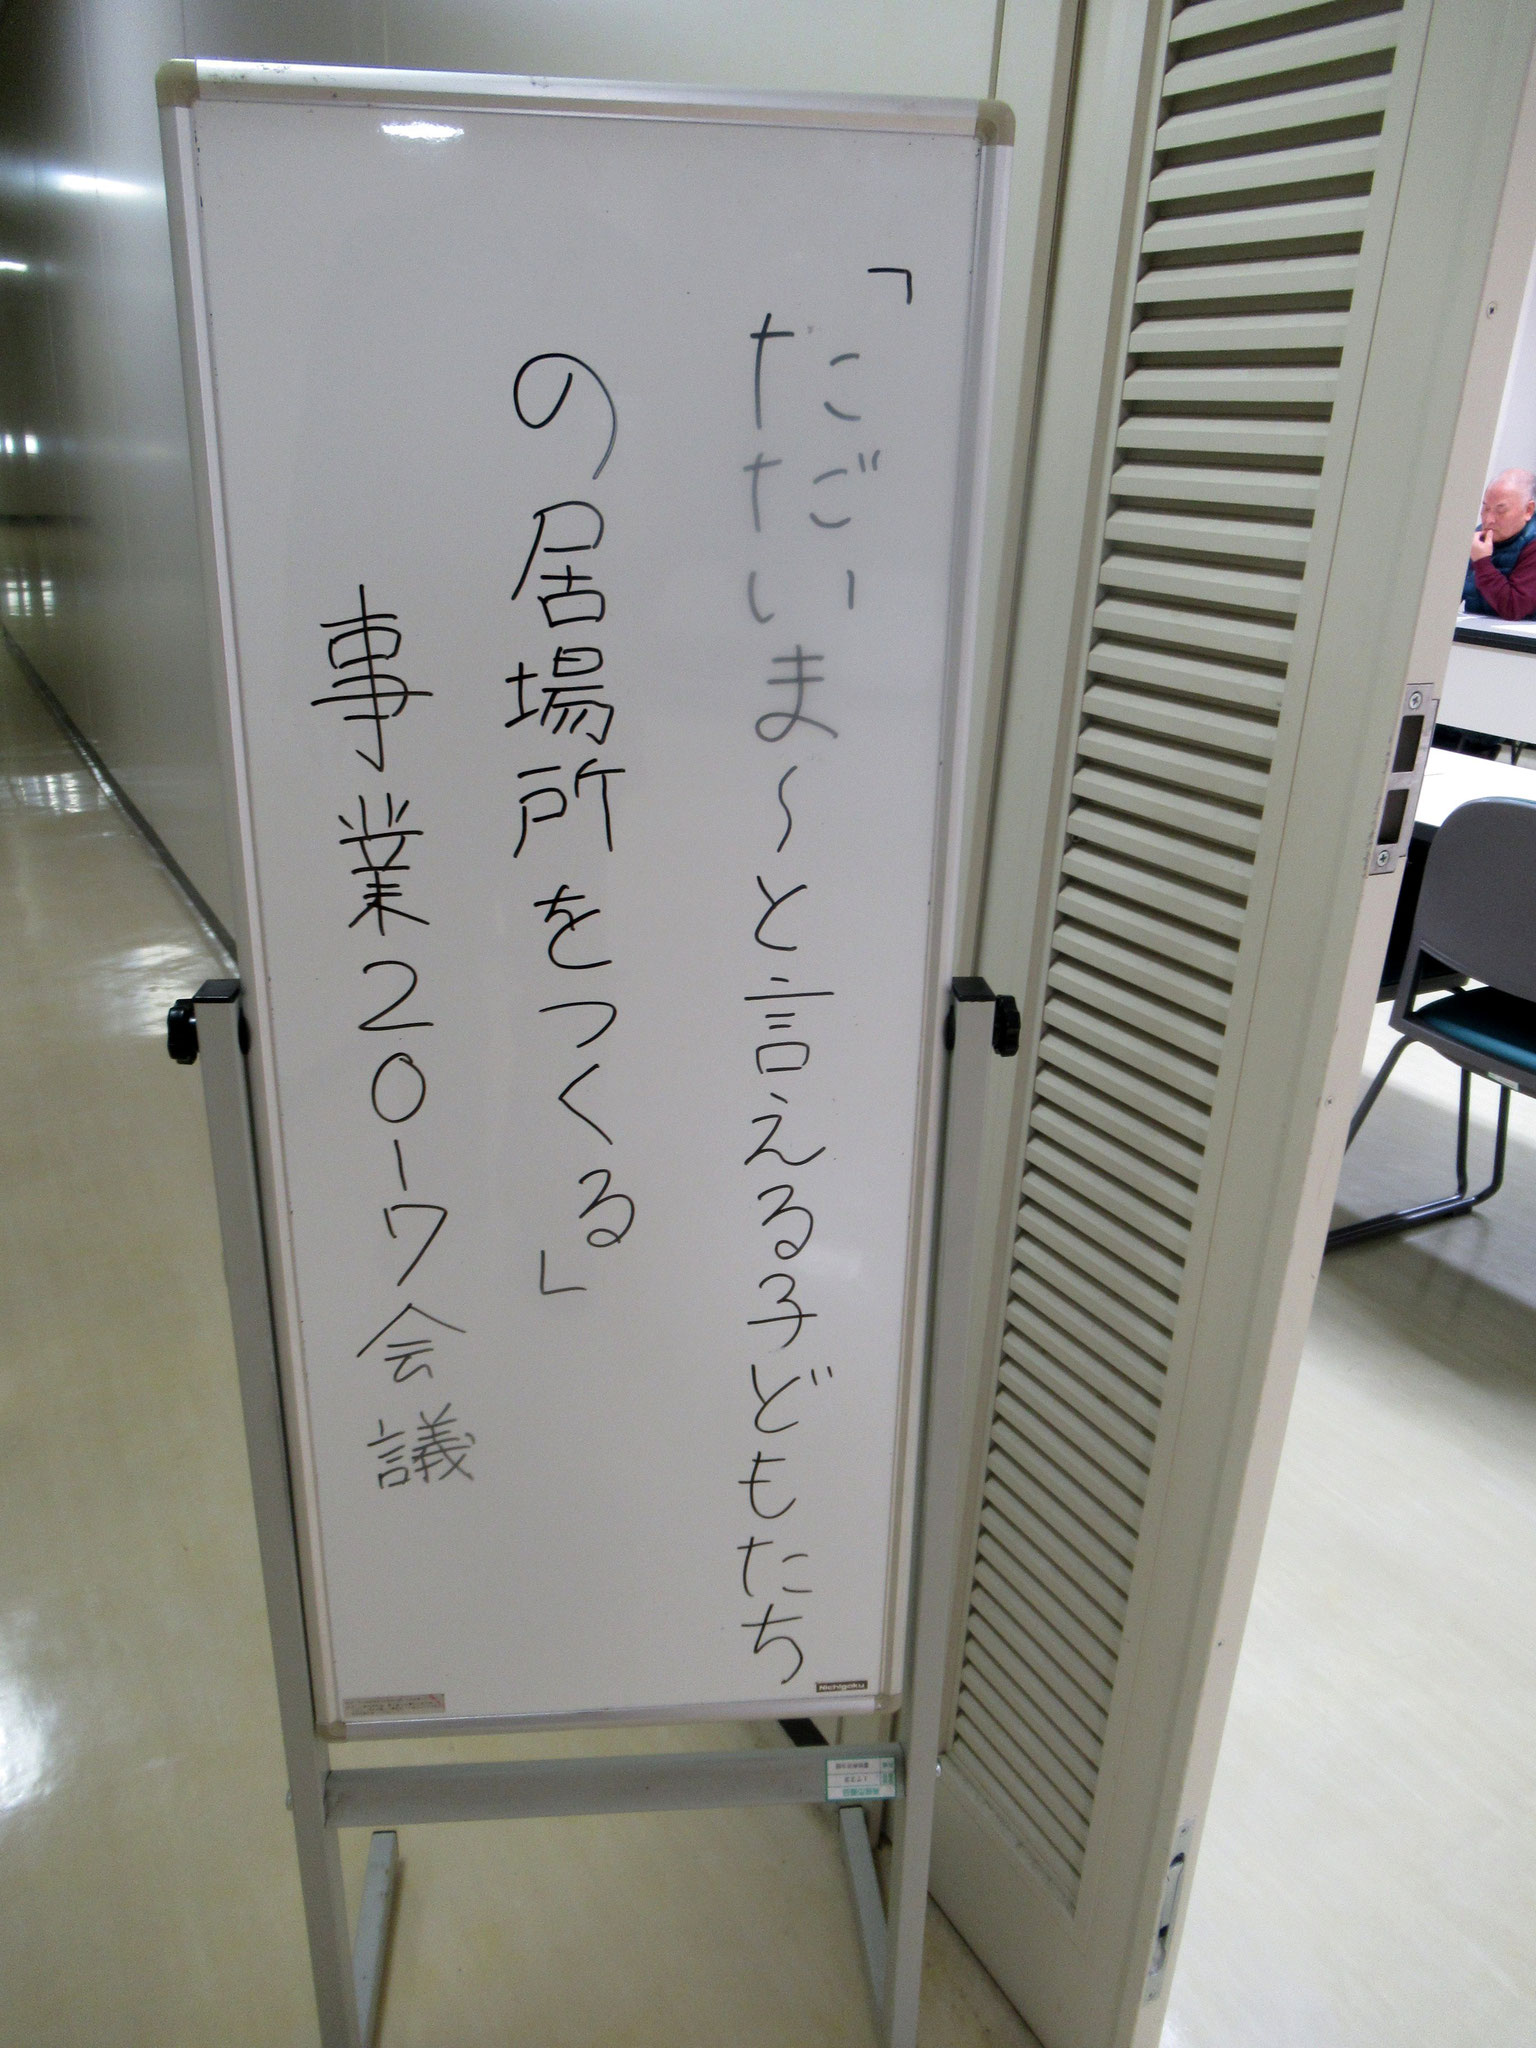 「ただいま～と言える子どもたち
の居場所をつくる」
事業2017会議
Nichigaku